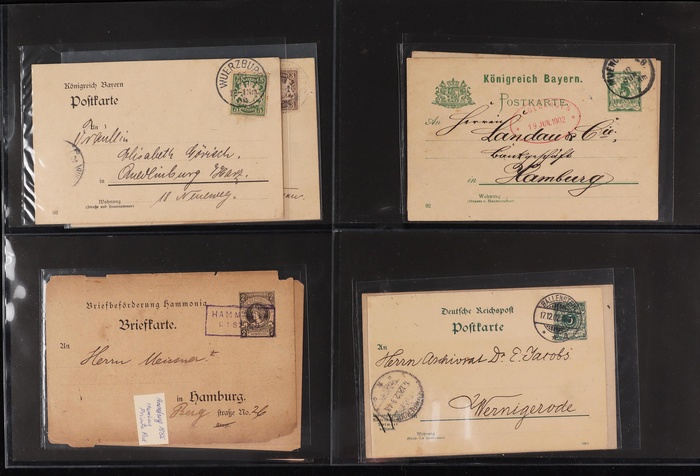 Königreich Bayern
Postkarte
WUERZBURG
An
Fräulein
Elisabeth Görisch
in Quedlinburg Harz
18 Neueweg.
Wohnung
(Straße und Hausnummer)
Königreich Bayern.
POSTKARTE
19 JUN. 1902
An Herren
Landau & Cie.
Bankgeschäft
in Hamburg
Wohnung
(Strasse u. Hausnummer)
02
Briefbeförderung Hammonia
Briefkarte.
HAMM
An
Herrn Meissner
in Hamburg.
straße No. 26
Hamburg
Private
Deutsche Reichspost
Postkarte
17.12.02
5
An
Herrn Archivrat Dr. E. Jacobs
in Wernigerode
Wohnung
(Straße und Hausnummer)